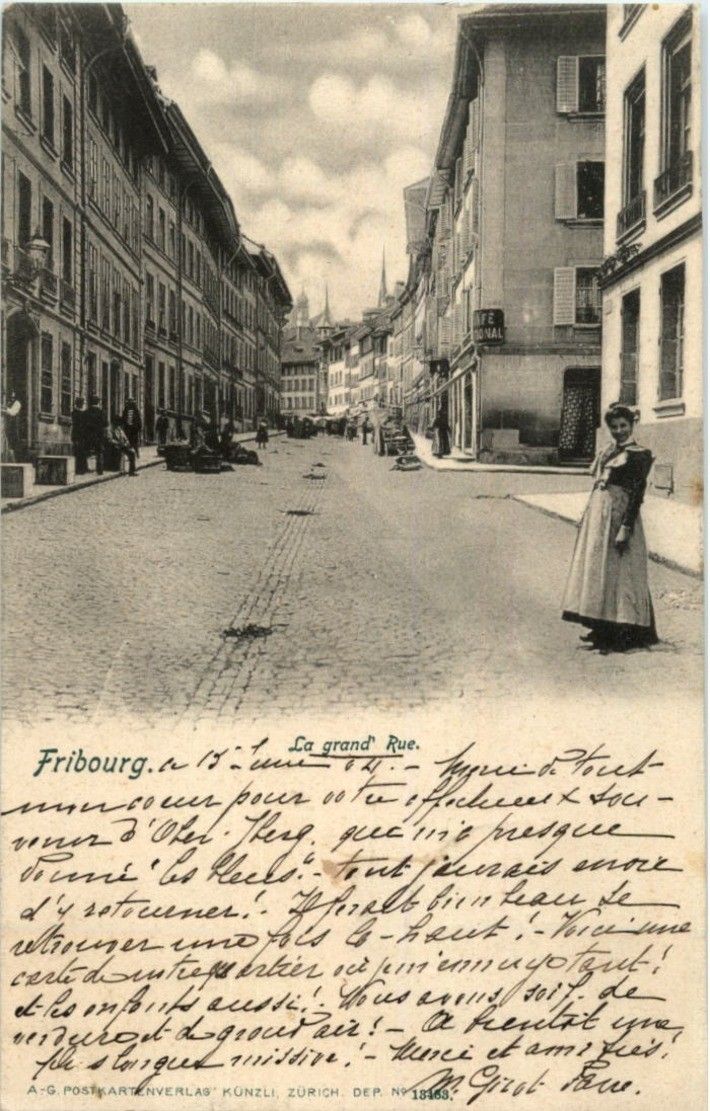 FÉ
ONAL
La grand' Rue.
Fribourg. ce 15 04. - Merci de tout
mon coeur pour votre affectueux sou-
venir d'Ober-Iberg, qui m'a presque
donné "les bleus". - tant j'aurais envie
d'y retourner! - Il ferait bien beau se
retrouver une fois là-haut! - Voici une
carte de notre quartier où je m'ennuye tant!
et les enfants aussi! - Nous avons soif de
verdure et de grand air! - A bientôt une
plus longue missive! - Merci et amitiés!
M. Girot
A.-G. POSTKARTENVERLAG KÜNZLI, ZÜRICH. DEP. No 13463.